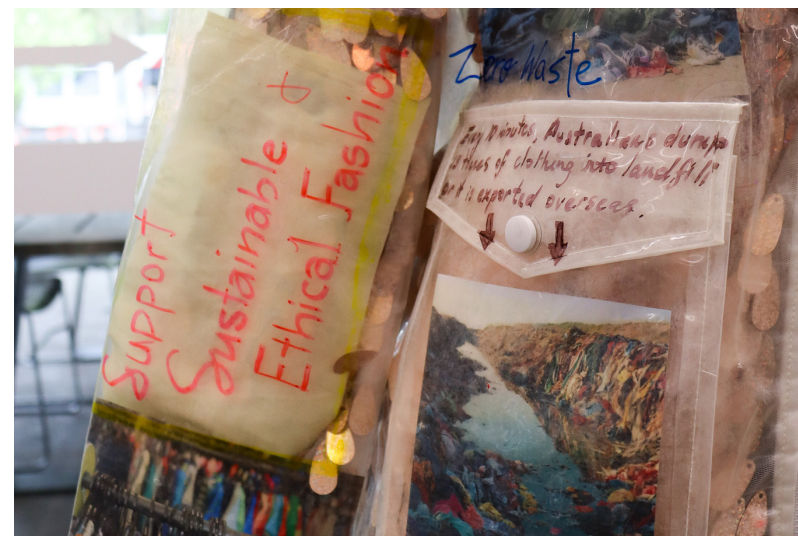 Support
Sustainable &
Ethical Fashion
Zero Waste
Every 10 minutes, Australians dump
of clothing into landfill
or it is exported overseas.